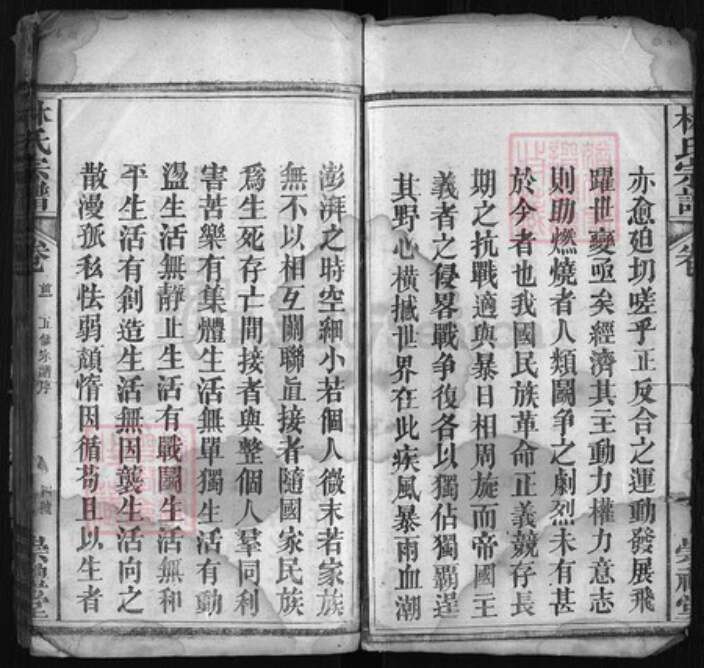 亦愈廹切嗟乎正反合之運動發展飛
躍世變亟矣經濟其主動力權力意志
則助燃燒者人類鬭争之劇烈未有甚
於今者也我國民族革命正義競存長
期之抗戰適與暴日相周旋而帝國主
義者之侵畧戰争復各以獨佔獨覇逞
其野心橫撼世界在此疾風暴雨血潮
澎湃之時空細小若個人微末若家族
無不以相互關聯直接者隨國家民族
爲生死存亡間接者與整個人羣同利
害苦樂有集體生活無單獨生活有動
盪生活無靜止生活有戰鬭生活無和
平生活有創造生活無因襲生活向之
散漫孤私怯弱頹惰因循苟且以生者
林氏宗譜
卷首
五修宗譜序